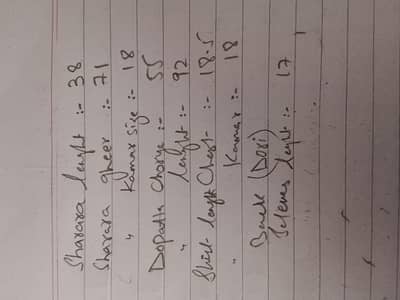 Sharara lenght :- 38
Sharara gheer :- 71
" Kamar size :- 18
Dopatta Chorye :- 55
" lenght :- 92
Shirt lenght Chest :- 18.5
" Kamar :- 18
Back (Dori)
lenght :- 17